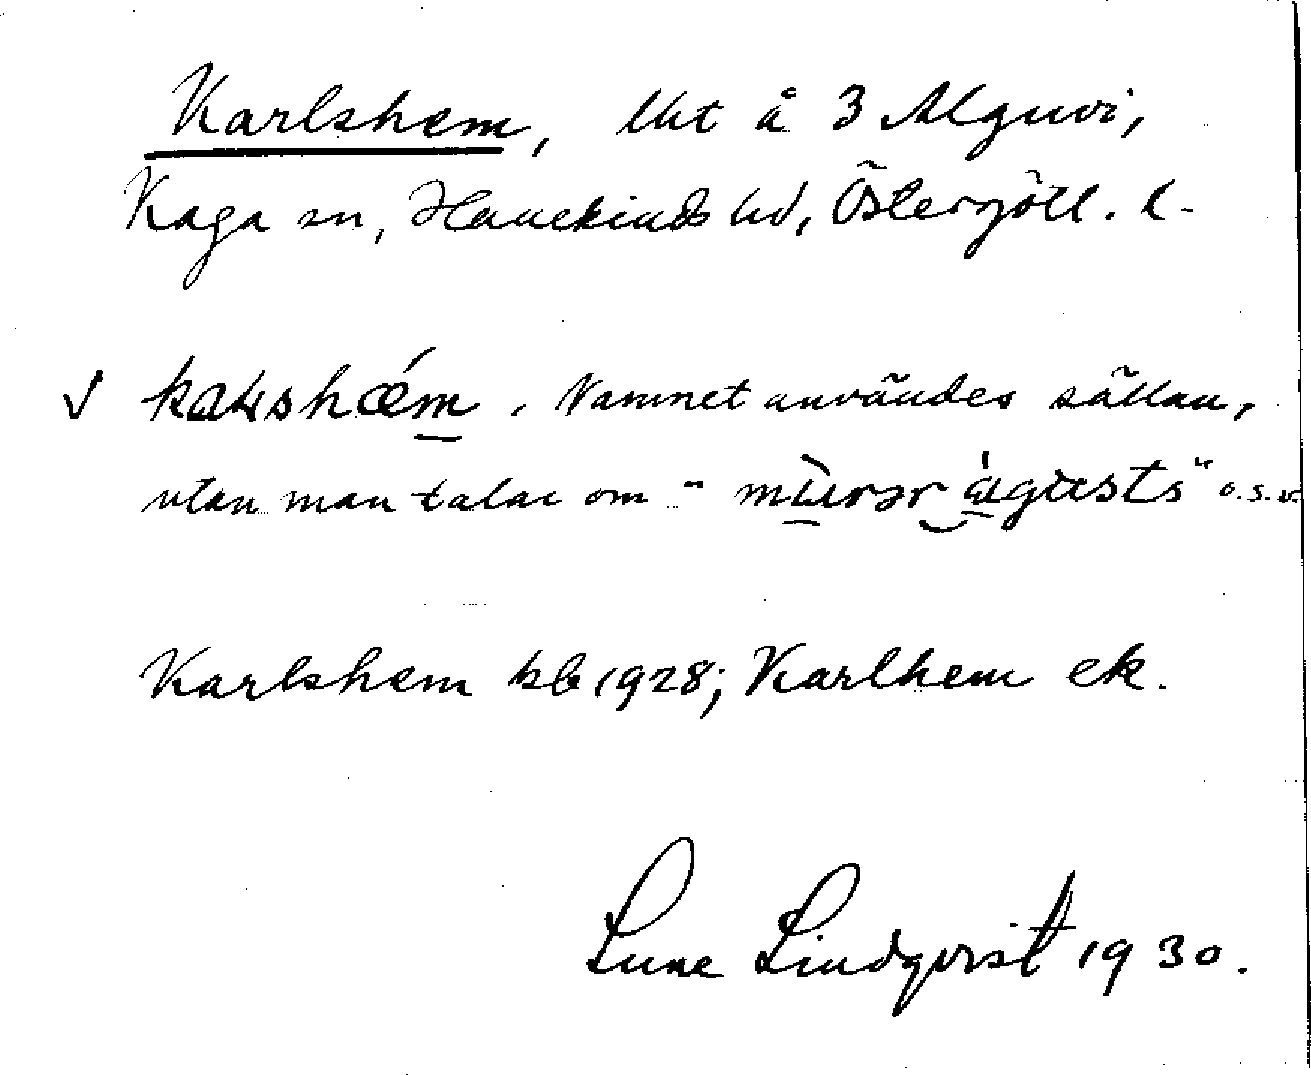 Karlshem, lht å 3 Alguvi,
Kaga sn, Hanekinds hd, Östergötl. l.
√ kaɭshǽm. Namnet användes sällan,
utan man talar om "mùrər águsts" o.s.v.
Karlshem kb 1928; Karlhem ek.
Sune Lindqvist 1930.